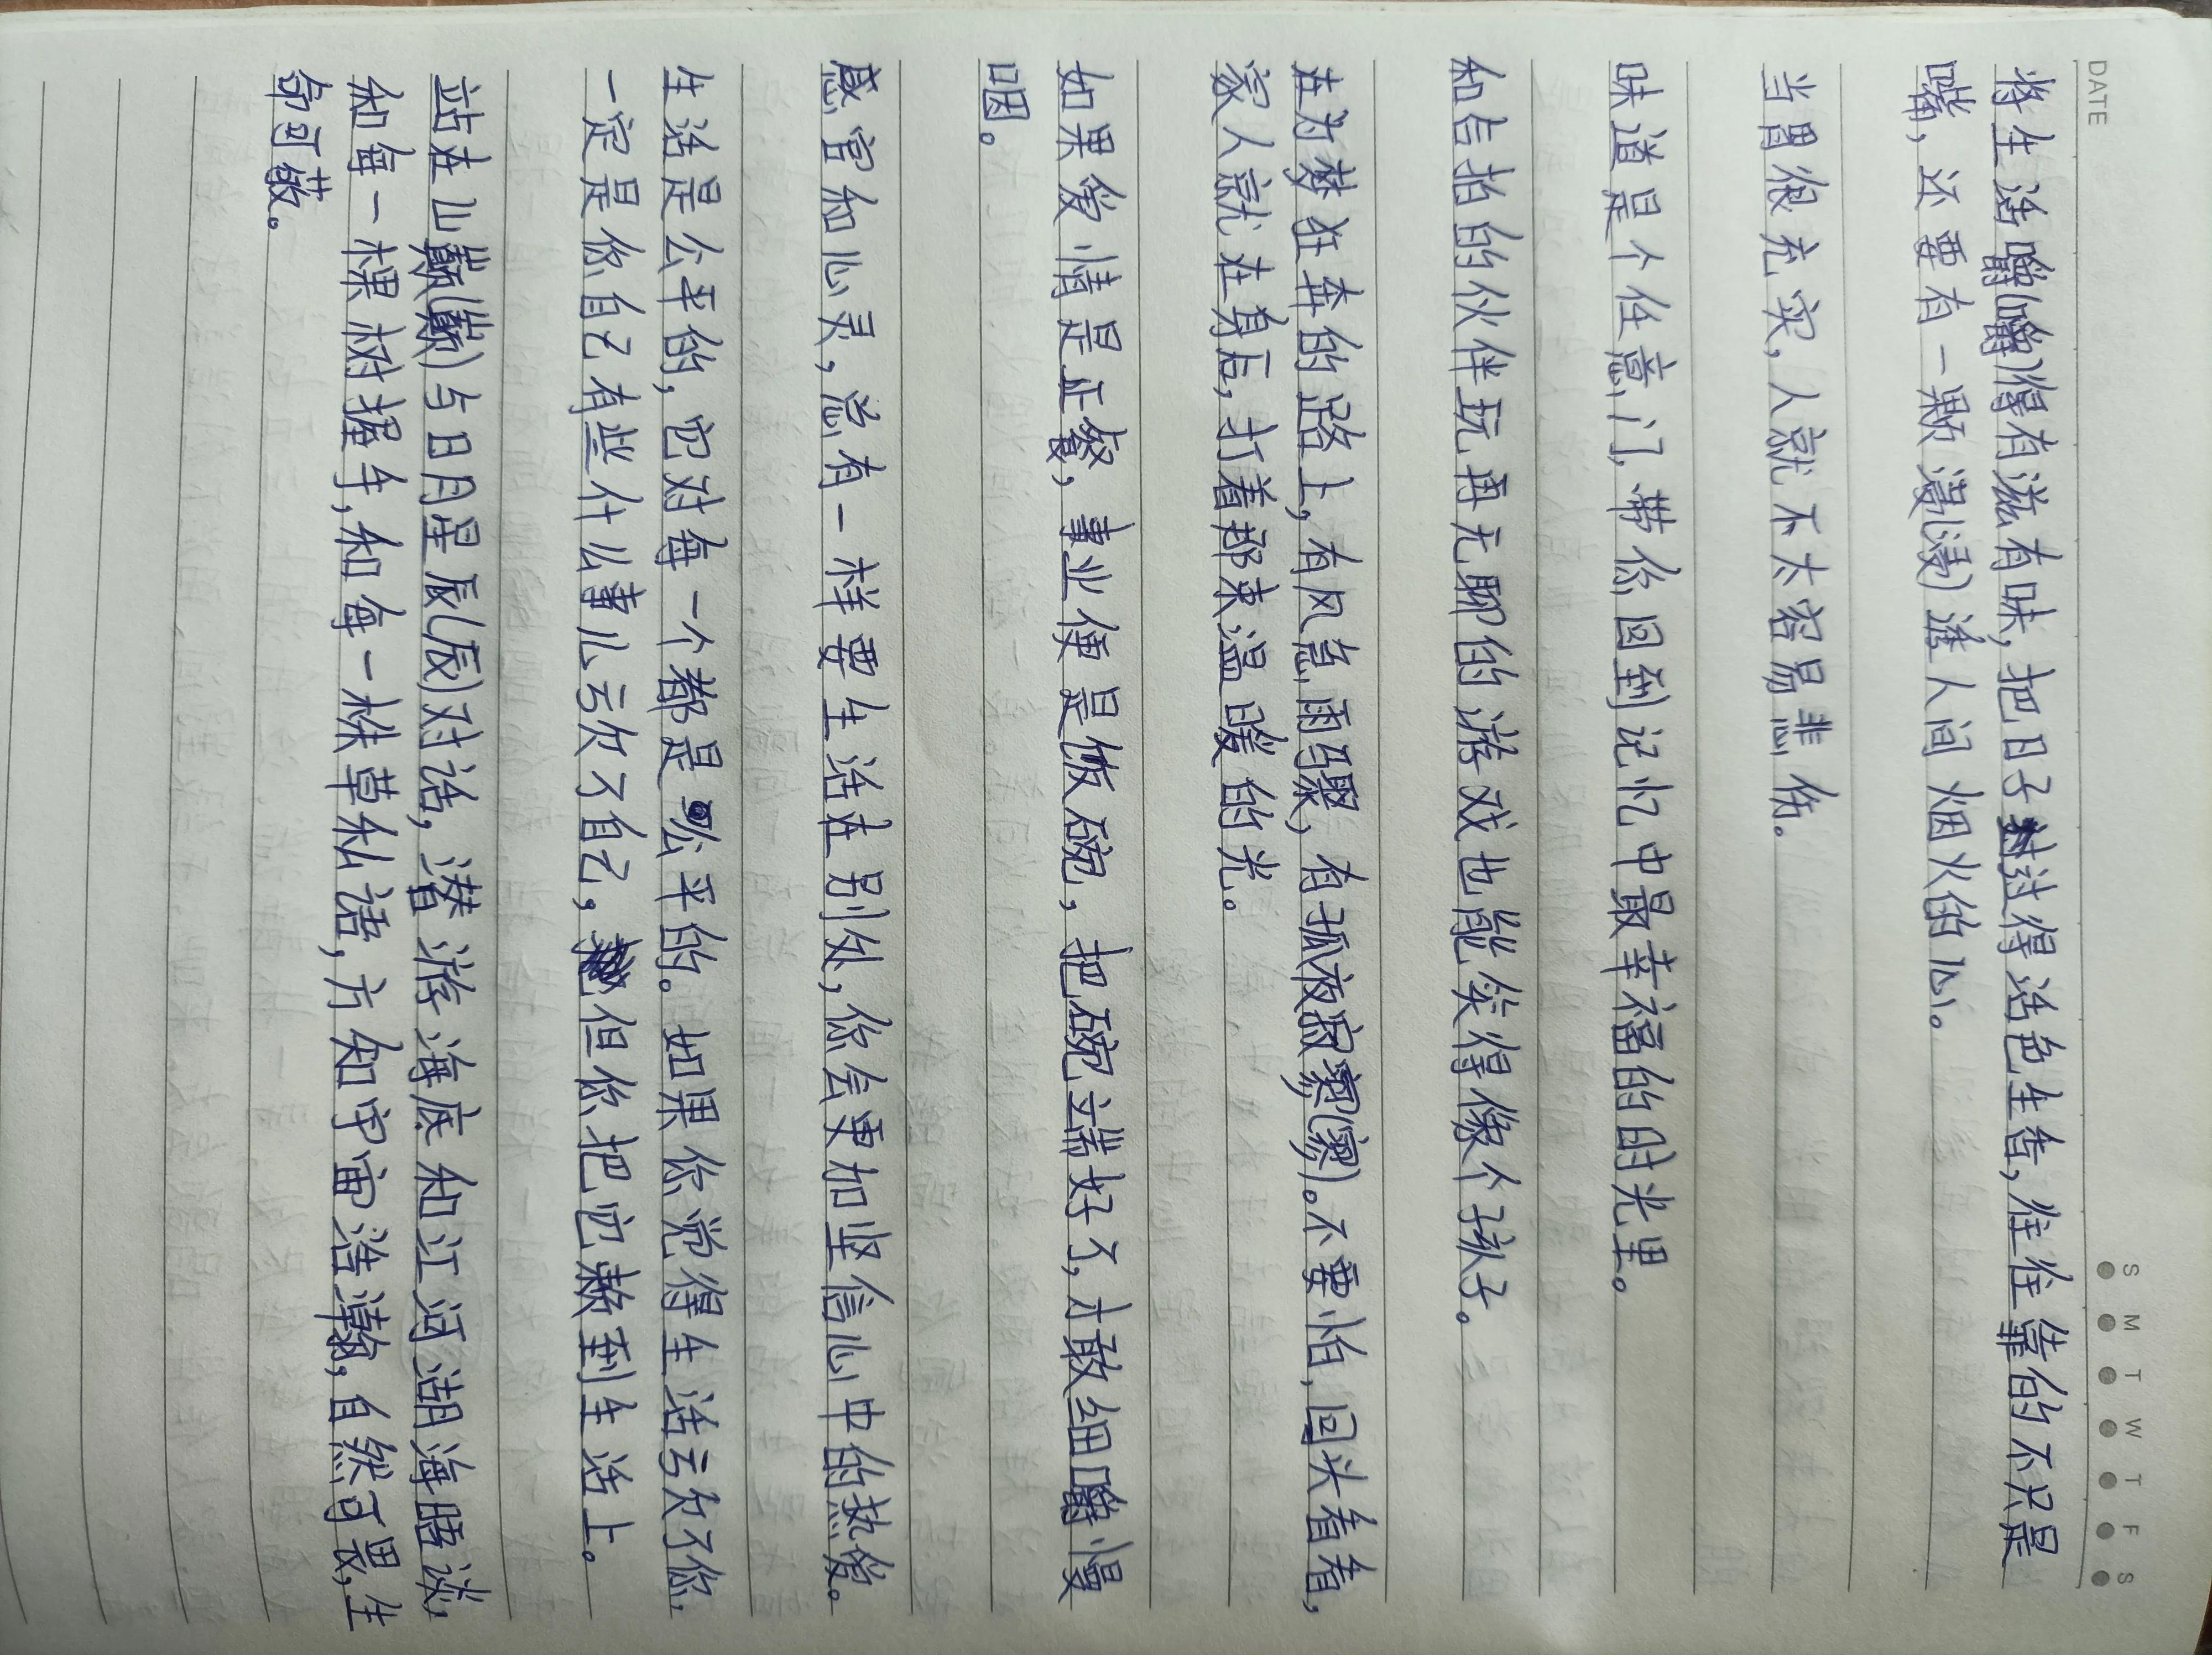 DATE
S M T W T F S
将生活嚼(嚼)得有滋有味,把日子过得活色生香,往往靠的不只是
嘴,还要有一颗浸(浸)透人间烟火的心。
当胃很充实,人就不太容易悲伤。
味道是个任意门,带你回到记忆中最幸福的时光里。
和合拍的伙伴玩再无聊的游戏也能笑得像个孩子。
在为梦狂奔的路上,有风急雨骤,有孤夜寂寥(寥)。不要怕,回头看看,
家人就在身后,打着那束温暖的光。
如果爱情是正餐,事业便是饭碗,把碗端好了,才敢细嚼慢
咽。
感官和心灵,总有一样要生活在别处,你会更加坚信心中的热爱。
生活是公平的,它对每一个都是公平的。如果你觉得生活亏欠了你,
一定是你自己有些什么事儿亏欠了自己,但你把它赖到生活上。
站在山巅(巅)与日月星辰(辰)对话,潜游海底和江河湖海晤谈,
和每一棵树握手,和每一株草私语,方知宇宙浩瀚,自然可畏,生
命可敬。